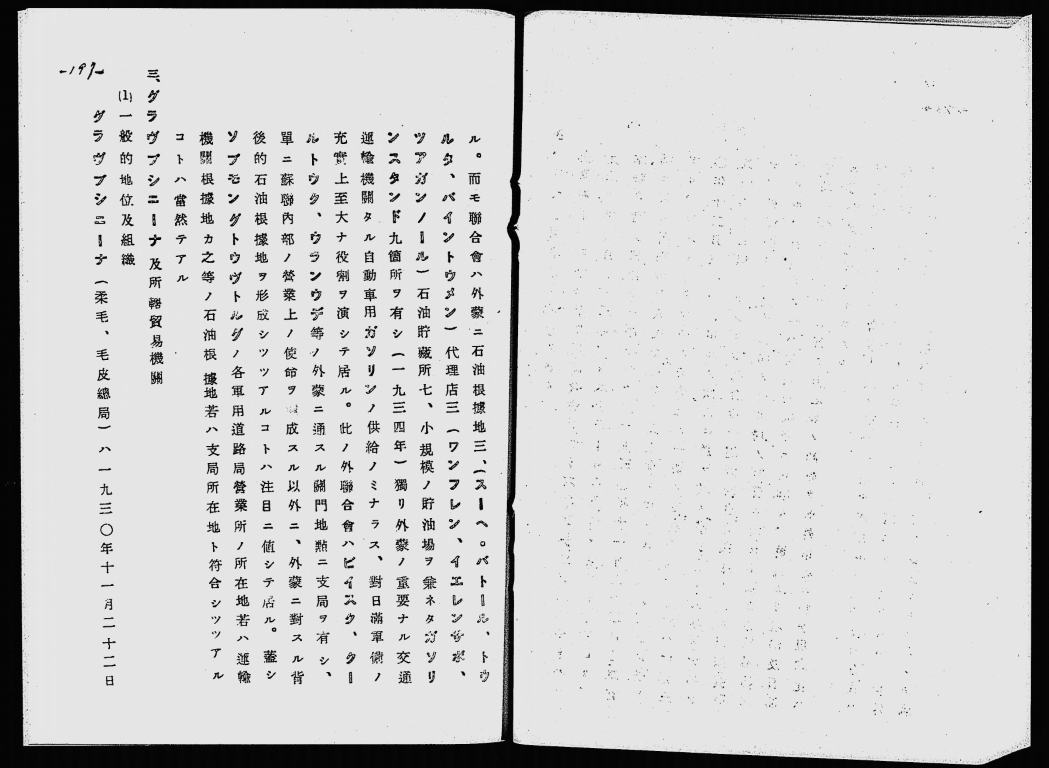 ル。而モ聯合會ハ外蒙ニ石油根據地三、(スーヘ。バトール、トウ
ルタ、バイントウメン)代理店三(ワンフレン、イエレンサボ、
ツアガンノール)石油貯藏所七、小規模ノ貯油場ヲ兼ネタガソリ
ンスタンド九箇所ヲ有シ(一九三四年)獨リ外蒙ノ重要ナル交通
運輸機關タル自動車用ガソリンノ供給ノミナラス、對日滿軍備ノ
充實上至大ナ役割ヲ演シテ居ル。此ノ外聯合會ハビイスク、クー
ルトウク、ウランウデ等ノ外蒙ニ通スル關門地點ニ支局ヲ有シ、
單ニ蘇聯内部ノ營業上ノ使命ヲ成スル以外ニ、外蒙ニ對スル背
後的石油根據地ヲ形成シツツアルコトハ注目ニ値シテ居ル。蓋シ
ソブモングトウヴトルグノ各軍用道路局營業所ノ所在地若ハ運輸
機關根據地カ之等ノ石油根據地若ハ支局所在地ト符合シツツアル
コトハ當然テアル
三、グラヴプシニーナ及所轄貿易機關
(1)一般的地位及組織
グラヴプシニーナ(柔毛、毛皮總局)ハ一九三〇年十一月二十二日
-197-